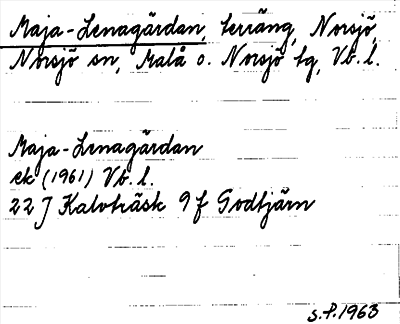 Maja-Lenagärdan, terräng, Norsjö
Norsjö sn, Malå o. Norsjö tg, Vb. l.
Maja-Lenagärdan
ek (1961) Vb. l.
22 J Kalvträsk 9 f Godtjärn
S.P. 1963